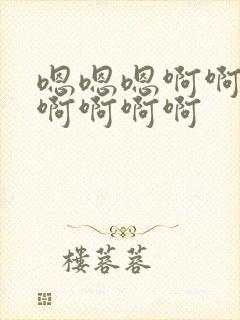 嗯嗯嗯啊啊
啊啊啊啊
楼蓉蓉